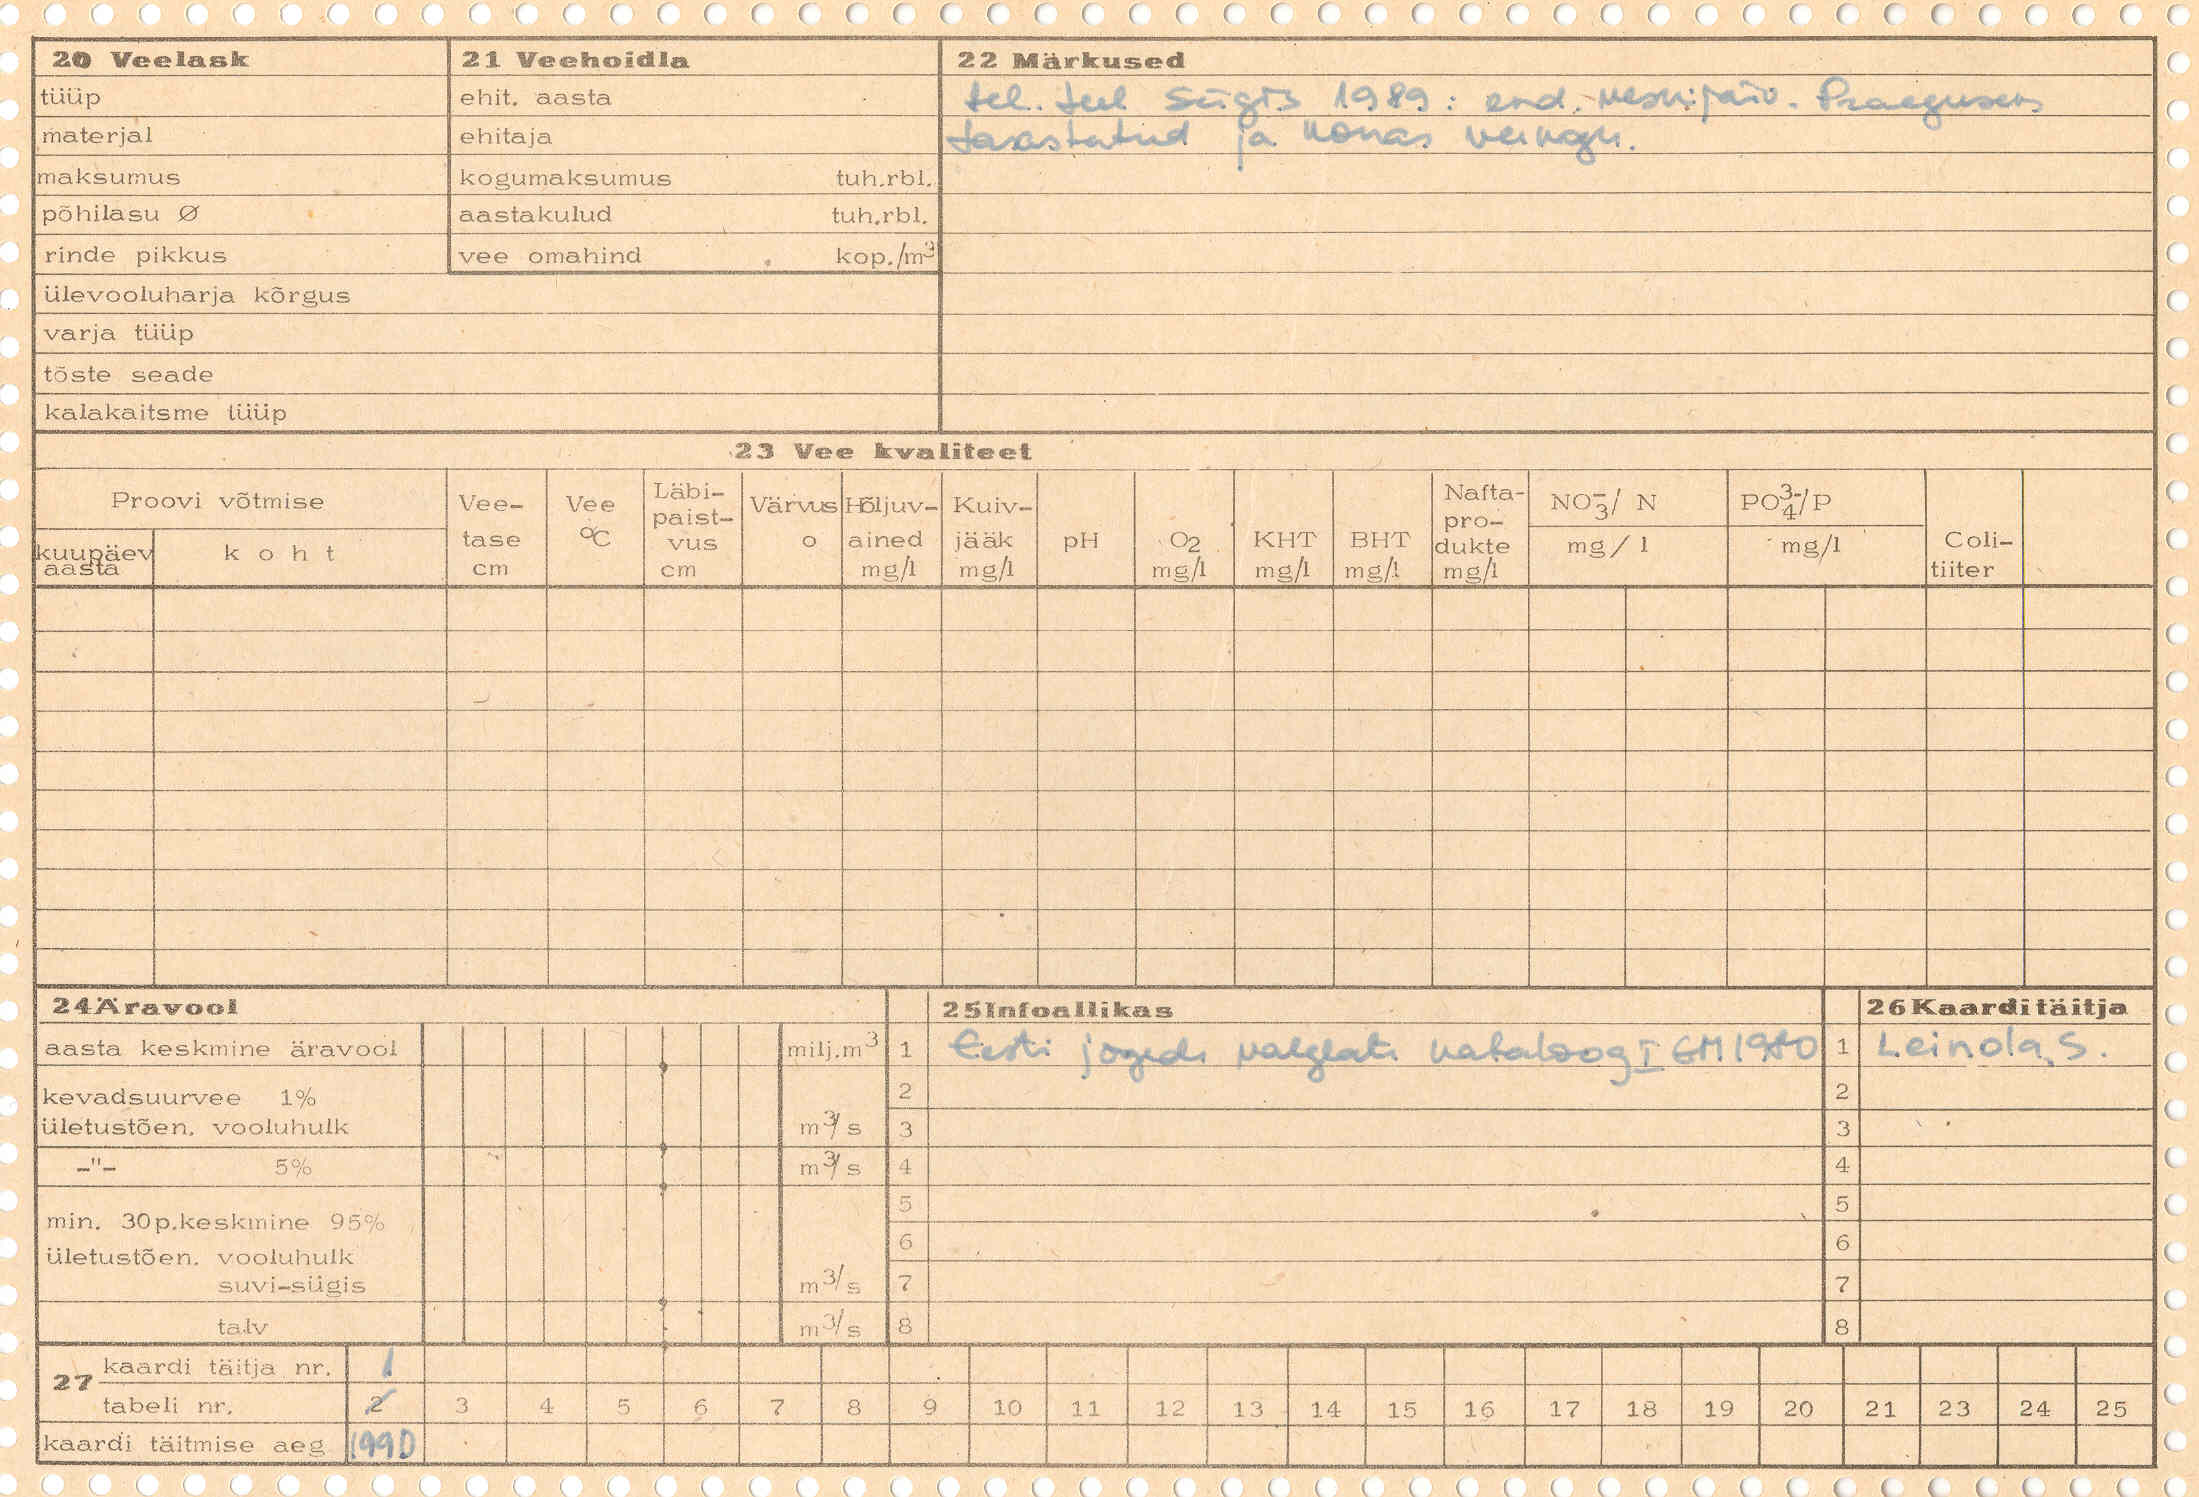 20 Veelask
tüüp
materjal
maksumus
põhilasu Ø
rinde pikkus
ülevooluharja kõrgus
varja tüüp
tõste seade
kalakaitsme tüüp
21 Veehoidla
ehit. aasta
ehitaja
kogumaksumus tuh.rbl.
aastakulud tuh.rbl.
vee omahind kop./m³
22 Märkused
tel. teel sügis 1989: end. veskijärv. Praeguseks
tasastatud ja korras
23 Vee kvaliteet
Proovi võtmise
kuupäev aasta
koht
Vee-tase cm
Vee °C
Läbi-paist-vus cm
Värvus o
Hõljuv-ained mg/l
Kuiv-jääk mg/l
pH
O₂ mg/l
KHT mg/l
BHT mg/l
Nafta-pro-dukte mg/l
NO₃⁻/ N mg/l
PO₄³⁻/P mg/l
Coli-tiiter
24 Äravool
aasta keskmine äravool milj.m³
kevadsuurvee 1%
ületustõen. vooluhulk m³/s
-"- 5% m³/s
min. 30p.keskmine 95%
ületustõen. vooluhulk
suvi-sügis m³/s
talv m³/s
25 Infoallikas
1 Eesti jõgede valglate kataloog I EM 1980
2
3
4
5
6
7
8
26 Kaardi täitja
1 Leinola, S.
2
3
4
5
6
7
8
27 kaardi täitja nr. 1
tabeli nr. 2 3 4 5 6 7 8 9 10 11 12 13 14 15 16 17 18 19 20 21 23 24 25
kaardi täitmise aeg 1990